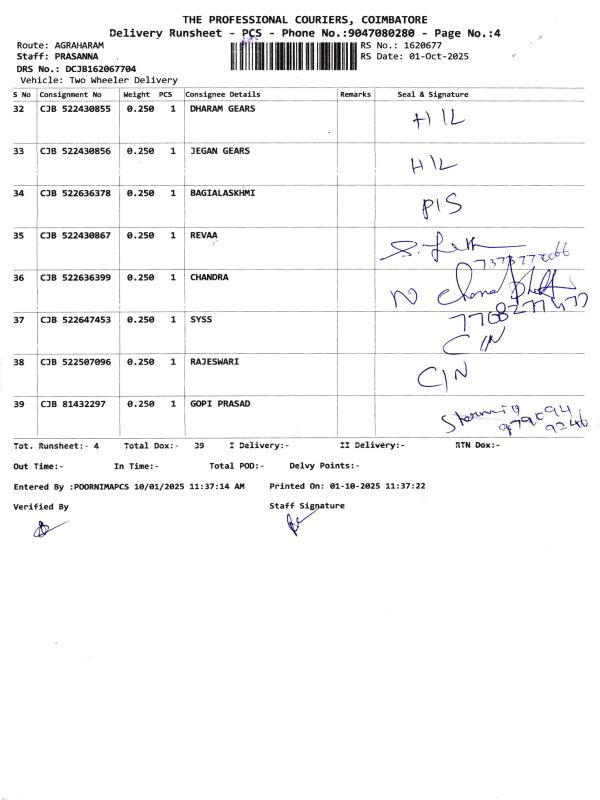 THE PROFESSIONAL COURIERS, COIMBATORE
Delivery Runsheet - PCS - Phone No.:9047080280 - Page No.:4
Route: AGRAHARAM RS No.: 1620677
Staff: PRASANNA RS Date: 01-Oct-2025
DRS No.: DCJB162067704
Vehicle: Two Wheeler Delivery
S No Consignment No Weight PCS Consignee Details Remarks Seal & Signature
32 CJB 522430855 0.250 1 DHARAM GEARS H/L
33 CJB 522430856 0.250 1 JEGAN GEARS H/L
34 CJB 522636378 0.250 1 BAGIALASKHMI P/S
35 CJB 522430867 0.250 1 REVAA
36 CJB 522636399 0.250 1 CHANDRA
37 CJB 522647453 0.250 1 SYSS C/N
38 CJB 522507096 0.250 1 RAJESWARI C/N
39 CJB 81432297 0.250 1 GOPI PRASAD
Tot. Runsheet:- 4 Total Dox:- 39 I Delivery:- II Delivery:- RTN Dox:-
Out Time:- In Time:- Total POD:- Delvy Points:-
Entered By :POORNIMAPCS 10/01/2025 11:37:14 AM Printed On: 01-10-2025 11:37:22
Verified By Staff Signature